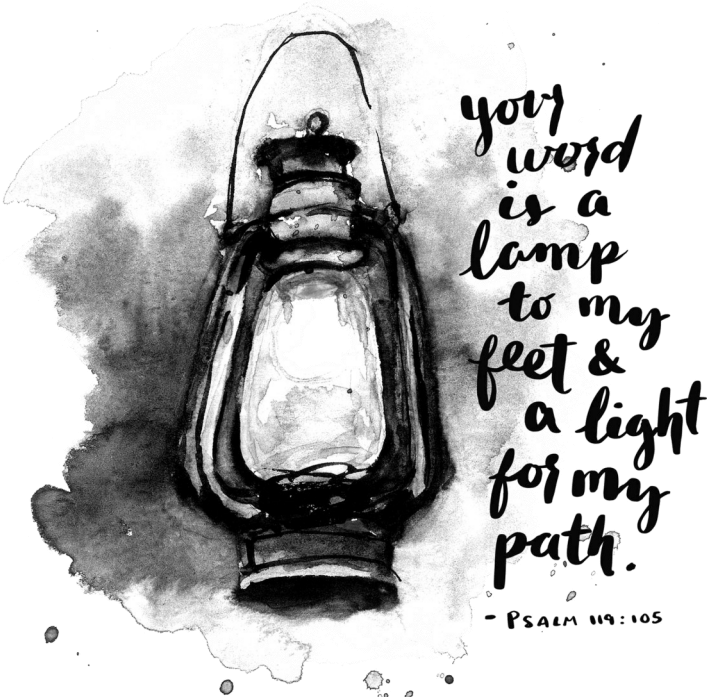 your
word
is a
lamp
to my
feet &
a light
for my
path.
- PSALM 119:105